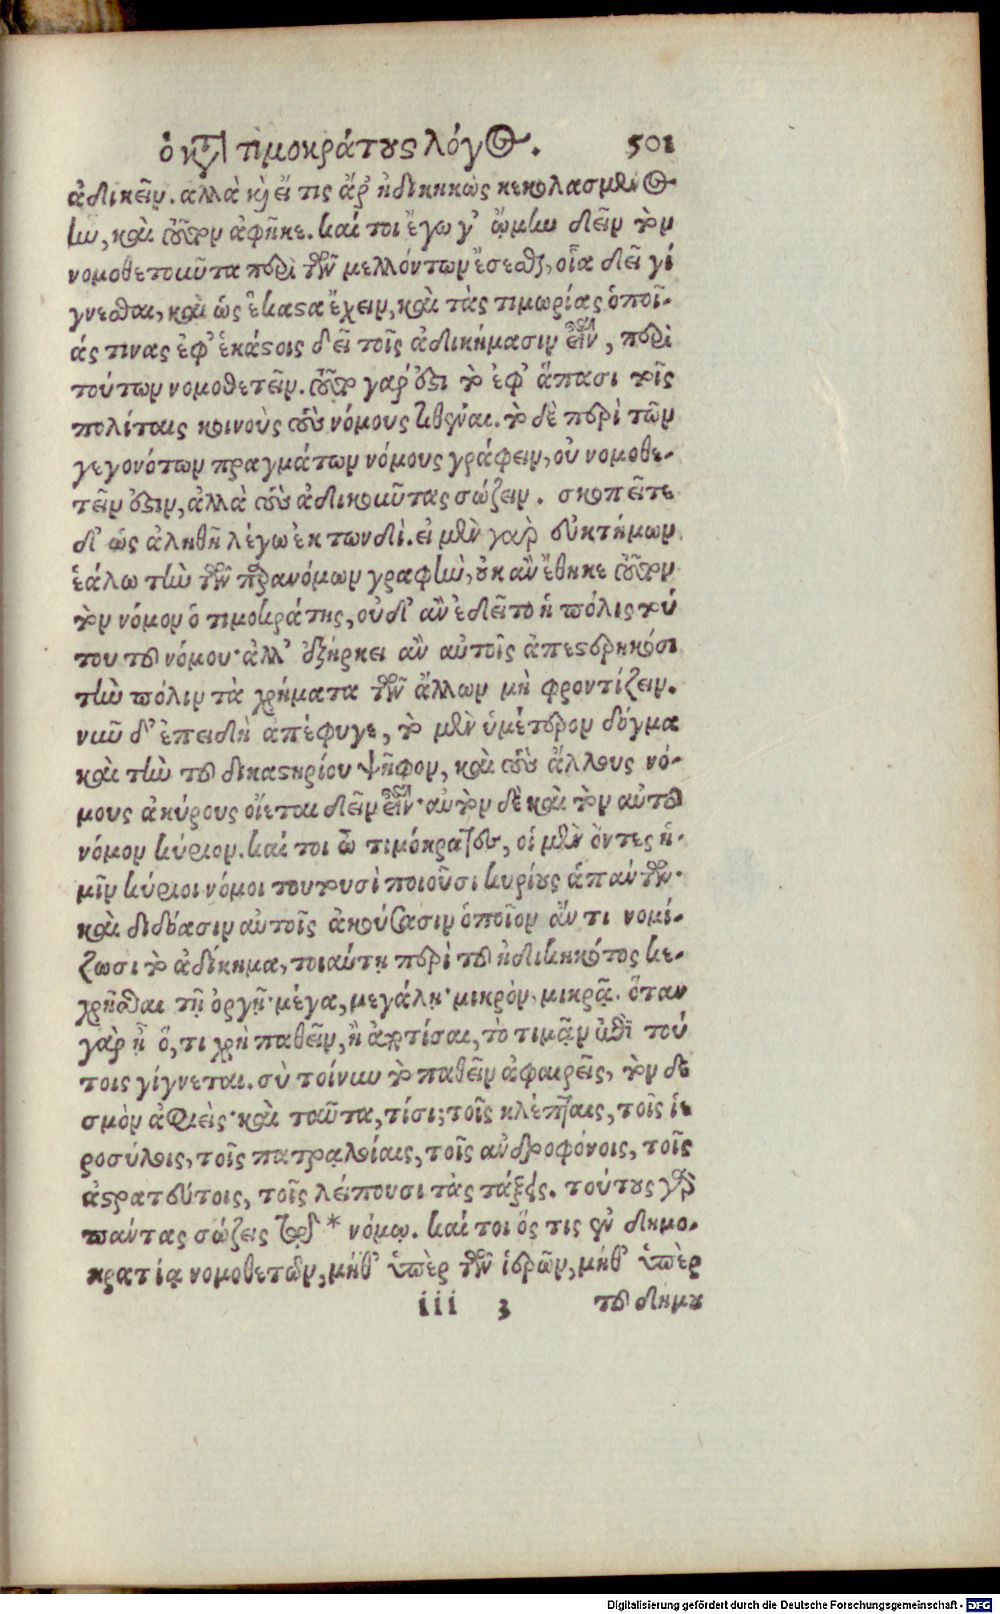 ὁ κατὰ τιμοκράτους λόγος. 501
ἀδικεῖν. ἀλλὰ καὶ εἴ τις ἄρ' ἠδικηκὼς κεκολασμένος
ἦν, καὶ τοῦτον ἀφῆκε. καί τοι ἔγωγ' ᾤμην δεῖν τὸν
νομοθετοῦντα περὶ τῶν μελλόντων ἔσεσθαι, οἷα δεῖ γί
γνεσθαι, καὶ ὡς ἕκαστα ἔχειν, καὶ τὰς τιμωρίας ὁποί-
άς τινας ἐφ' ἑκάστοις δεῖ τοῖς ἀδικήμασιν εἶναι, περὶ
τούτων νομοθετεῖν. τοῦτο γάρ ἐστι τὸ ἐφ' ἅπασι τοῖς
πολίταις κοινοὺς τοὺς νόμους τιθέναι. τὸ δὲ περὶ τῶν
γεγονότων πραγμάτων νόμους γράφειν, οὐ νομοθε-
τεῖν ἐστιν, ἀλλὰ τοὺς ἀδικοῦντας σώζειν. σκοπεῖτε
δ' ὡς ἀληθῆ λέγω ἐκ τωνδί. εἰ μὲν γὰρ εὐκτήμων
ἑάλω τὴν τῶν παρανόμων γραφὴν, οὐκ ἂν ἔθηκε τοῦτον
τὸν νόμον ὁ τιμοκράτης, οὐδ' ἂν ἐδεῖτο ἡ πόλις τού
του τοῦ νόμου· ἀλλ' ἐξήρκει ἂν αὐτοῖς ἀπεστερηκόσι
τὴν πόλιν τὰ χρήματα τῶν ἄλλων μὴ φροντίζειν.
νῦν δ' ἐπειδὴ ἀπέφυγε, τὸ μὲν ὑμέτερον δόγμα
καὶ τὴν τοῦ δικαστηρίου ψῆφον, καὶ τοὺς ἄλλους νό-
μους ἀκύρους οἴεται δεῖν εἶναι· αὑτὸν δὲ καὶ τὸν αὑτοῦ
νόμον κύριον. καί τοι ὦ τιμόκρατες, οἱ μὲν ὄντες ἡ-
μῖν κύριοι νόμοι τουτουσὶ ποιοῦσι κυρίους ἁπάντων·
καὶ διδόασιν αὐτοῖς ἀκούσασιν ὁποῖον ἄν τι νομί-
ζωσι τὸ ἀδίκημα, τοιαύτῃ περὶ τοῦ ἠδικηκότος κε-
χρῆσθαι τῇ ὀργῇ· μέγα, μεγάλῃ· μικρὸν, μικρᾷ. ὅταν
γὰρ ᾖ ὅ, τι χρὴ παθεῖν, ἢ ἀποτίσαι, τὸ τιμᾷν ἐπὶ τού
τοις γίγνεται. σὺ τοίνυν τὸ παθεῖν ἀφαιρεῖς, τὸν δε
σμὸν ἀφιεὶς· καὶ ταῦτα, τίσι; τοῖς κλέπταις, τοῖς ἱε
ροσύλοις, τοῖς πατραλοίαις, τοῖς ἀνδροφόνοις, τοῖς
ἀστρατεύτοις, τοῖς λείπουσι τὰς τάξεις. τούτους γὰρ
πάντας σώζεις τῷδε * νόμῳ. καί τοι ὅς τις ἐν δημο-
κρατίᾳ νομοθετῶν, μήθ' ὑπὲρ τῶν ἱερῶν, μήθ' ὑπὲρ
iii 3 τοῦ δήμου
Digitalisierung gefördert durch die Deutsche Forschungsgemeinschaft - DFG